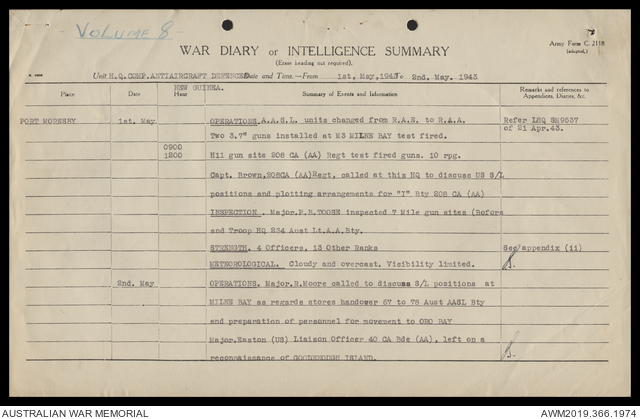 VOLUME 8 -
WAR DIARY or INTELLIGENCE SUMMARY
(Erase heading not required).
Army Form C. 2118
(adapted.)
Unit H.Q. COMP. ANTIAIRCRAFT DEFENCES Date and Time.—From 1st, May, 1943 To 2nd. May. 1943
NEW GUINEA.
Place Date Hour Summary of Events and Information Remarks and references to Appendices, Diaries, &c.
PORT MORESBY 1st. May OPERATIONS A.A.S.L. units changed from R.A.E. to R.A.A. Refer LHQ SM9537
Two 3.7" guns installed at M3 MILNE BAY test fired. of 21 Apr.43.
0900
1200 H11 gun site 208 CA (AA) Regt test fired guns. 10 rpg.
Capt. Brown, 208CA (AA) Regt, called at this HQ to discuss US S/L
positions and plotting arrangements for "I" Bty 208 CA (AA)
INSPECTION . Major.P.B.TOOSE inspected 7 Mile gun sites (Bofors
and Troop HQ 234 Aust Lt.A.A.Bty.
STRENGTH. 4 Officers, 13 Other Ranks See appendix (ii)
METEOROLOGICAL. Cloudy and overcast. Visibility limited.
2nd. May OPERATIONS. Major.R.Moore called to discuss S/L positions at
MILNE BAY as regards stores handover 67 to 78 Aust AASL Bty
and preparation of personnel for movement to ORO BAY
Major.Easton (US) Liaison Officer 40 CA Bde (AA), left on a
reconnaissance of GOODENOUGH ISLAND.
AUSTRALIAN WAR MEMORIAL AWM2019.366.1974